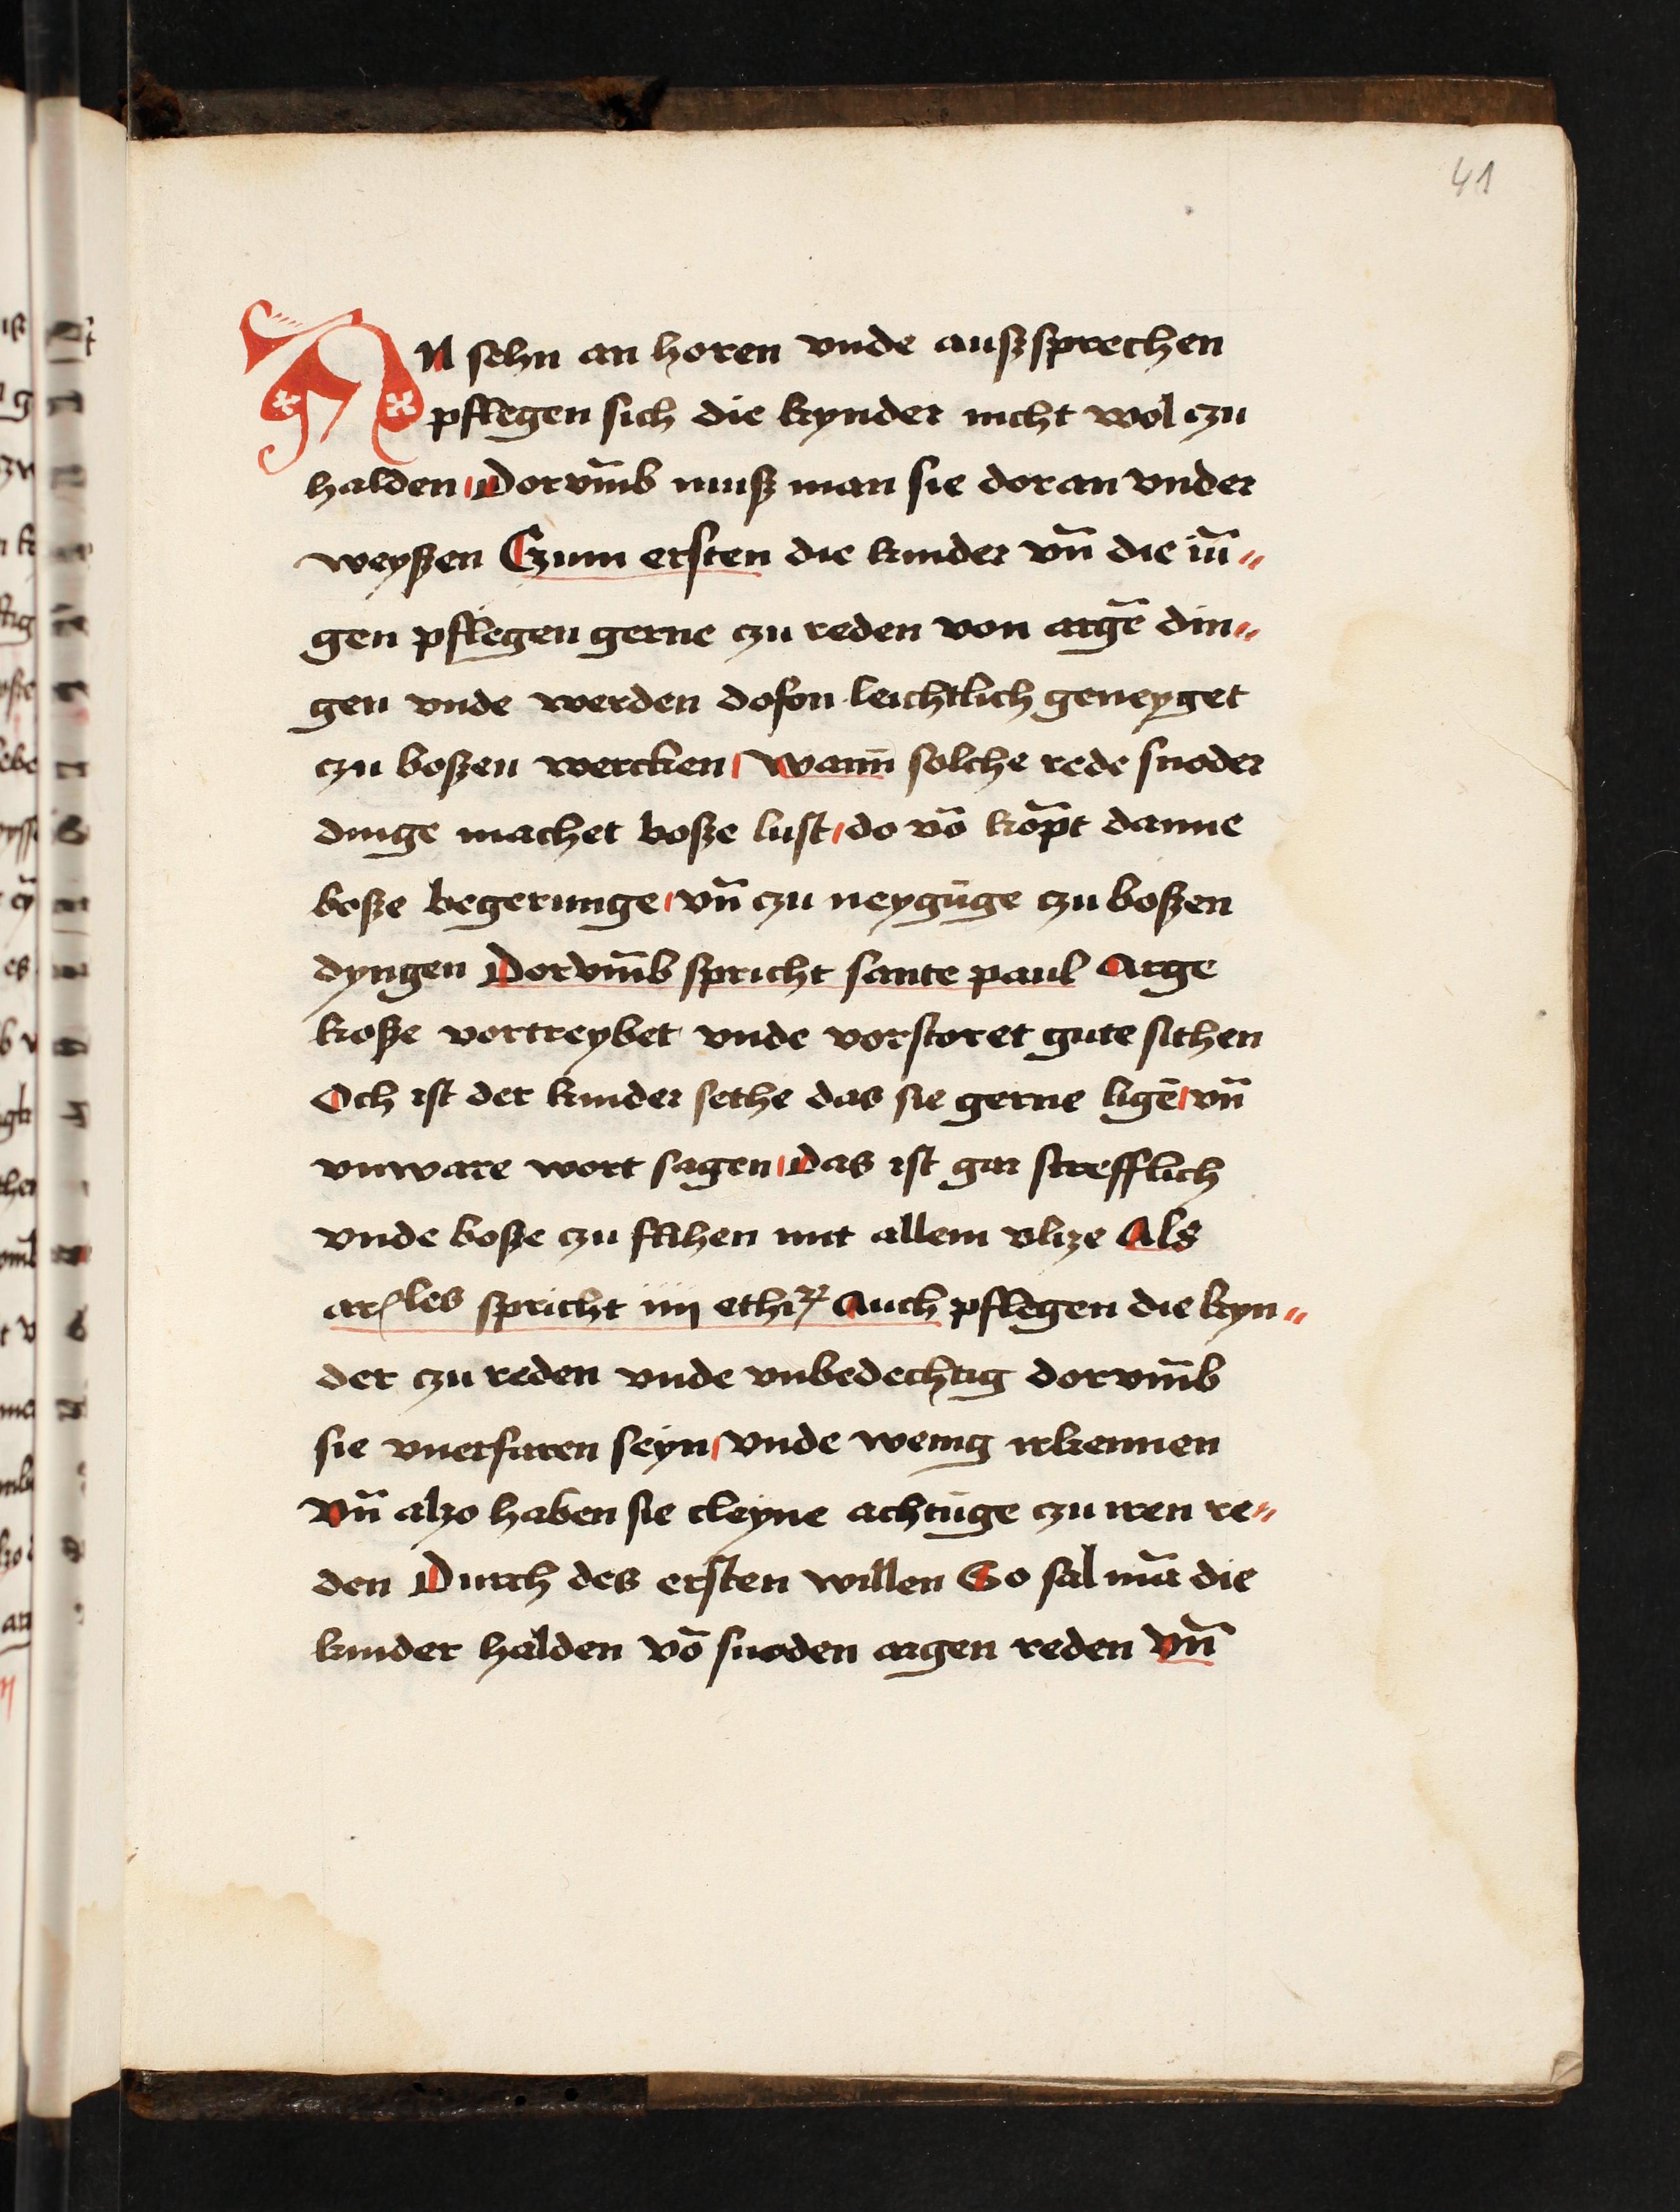 41
AN sehn an horen vnde außsprechen
pflegen sich die kynder nicht wol czu
halden Dorvm̄b muß man sie doran vnder
weyßen Czum ersten die kinder vn̄ die iū⸗
gen pflegen gerne czu reden von argē din⸗
gen vnde werden dofon leichtlich geneyget
czu boßen wercken wann̄ solche rede snoder
dinge machet boße lust do vō kōpt danne
boße begerunge vn̄ czu neygūge czu boßen
dyngen Dorvm̄b spricht sante paul Arge
koße vortreybet vnde vorstoret gute sithen
Och ist der kinder sethe das sie gerne ligē vn̄
vnware wort sagen das ist gar strefflich
vnde boße czu flihen mit allem vlize Als
ar̄les spricht iiij ethiꝝ Auch pflegen die kyn⸗
der czu reden vnde vnbedechtig dorvm̄b
sie vnerfaren seyn vnde wenig irkennen
Vn̄ alzo haben sie cleyne achtūge czu iren re⸗
den Durch des ersten willen So sal mā die
kinder halden vō snoden argen reden Vn̄